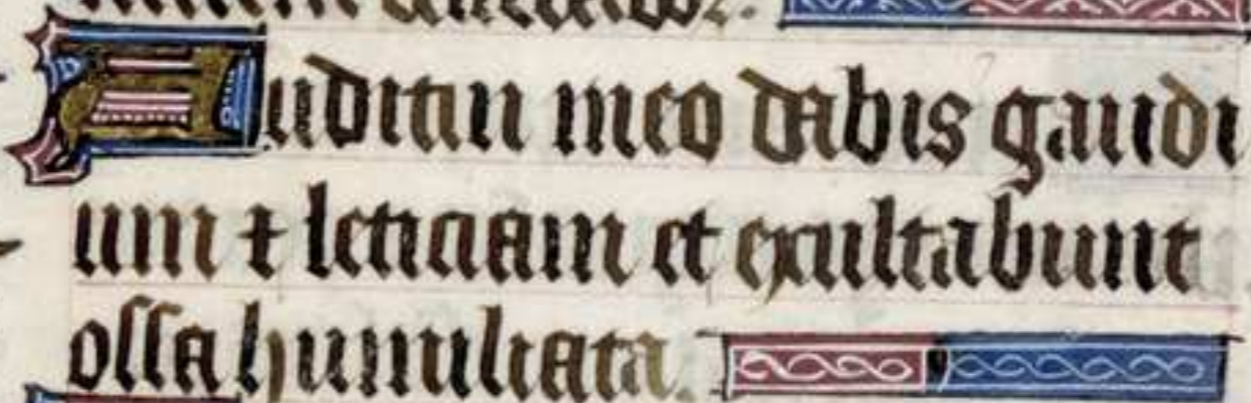 Auditui meo dabis gaudi
um ⁊ leticiam et exultabunt
ossa humiliata.